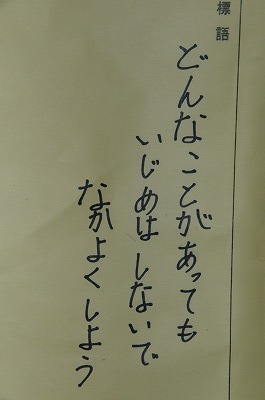 標語
どんなことがあっても
いじめはしないで
なかよくしよう